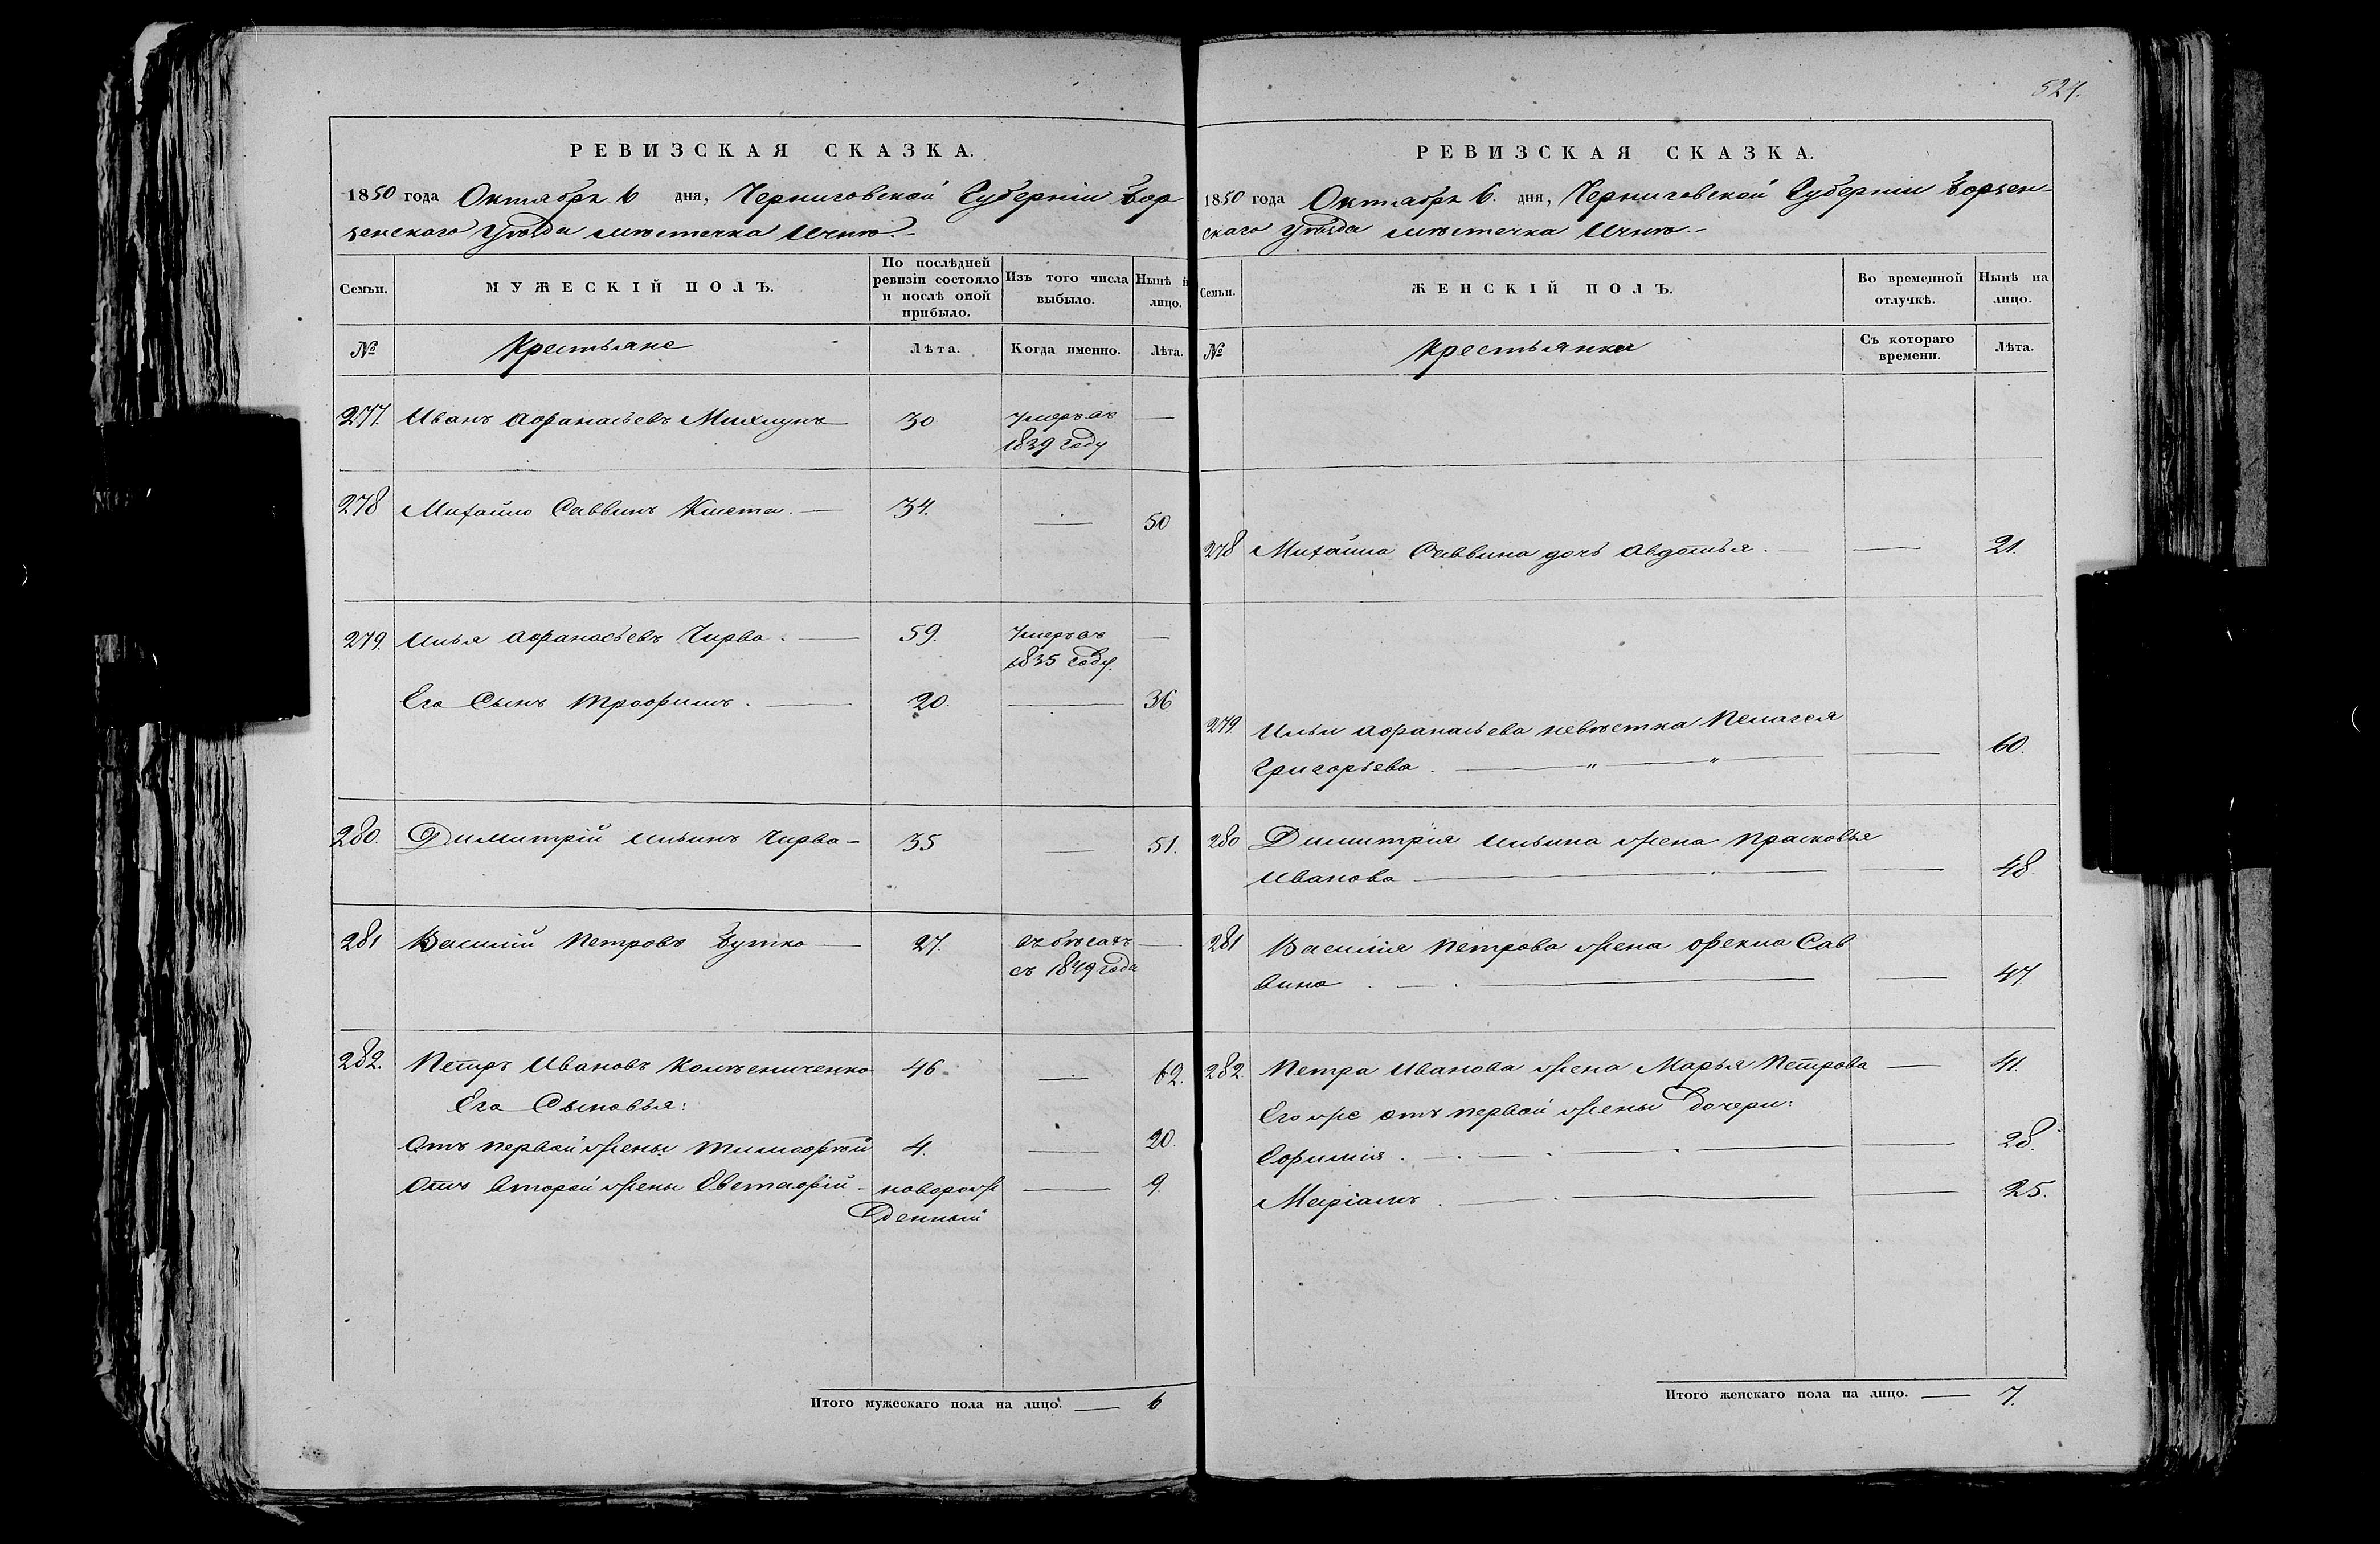 РЕВИЗСКАЯ СКАЗКА.
1850 года Октября 6 дня, Черниговской Губерніи Бор
зенского Уѣзда мѣстечка Ичнѣ.
Семьи. МУЖЕСКІЙ ПОЛЪ. По послѣдней ревизіи состояло и послѣ оной прибыло. Изъ того числа выбыло. Нынѣ н лицо.
№ Крестьяне Лѣта. Когда именно. Лѣта.
277. Иванъ Афанасьевъ 30 Умеръ въ —
1839 году
278 Михайло Саввинъ 34. — 50
279. Илья Афанасьевъ Чирва. — 59. Умеръ въ —
1835 году.
Его Сынъ Трофимъ. — 20. — 36
280. Димитрій Ильинъ Чирва — 35 — 51.
281 Василий Петровъ Бутко — 27. въ бѣгахъ —
съ 1849 года
282. Петръ Ивановъ 46. — 62.
Его Сыновья:
Отъ первой жены Тимофѣй 4. — 20.
Отъ второй жены Евстафій — новорож — 9.
денный
Итого мужескаго пола на лицо. — 6
527.
РЕВИЗСКАЯ СКАЗКА.
1850 года Октября 6. дня, Черниговской Губерніи Борзен-
скаго Уѣзда мѣстечка Ичнѣ. —
Семьи. ЖЕНСКІЙ ПОЛЪ. Во временной отлучкѣ. Нынѣ на лицо.
№ Крестьянки Съ котораго времени. Лѣта.
278 Михайла Саввина дочь Авдотья. — 21.
279. Ильи Афанасьева невѣстка Пелагея
Григорьева. — " — " — 60.
280 Димитрія Ильина жена Прасковья
Иванова — 48.
281 Василія Петрова жена Фекла Сав
вина — 47.
282. Петра Иванова жена Марья Петрова — 41.
Его же отъ первой жены Дочери:
Ефимія. — 28.
Маріамъ. — 25.
Итого женскаго пола на лицо. — 7.